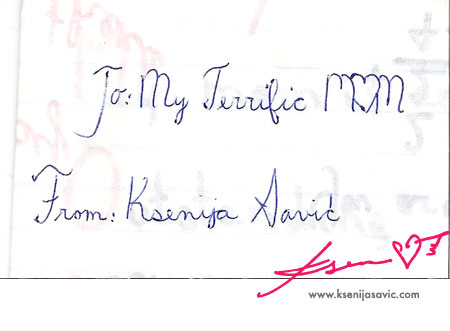 To: My Terrific MOM
From: Ksenija Savić
Ksen
www.ksenijasavic.com